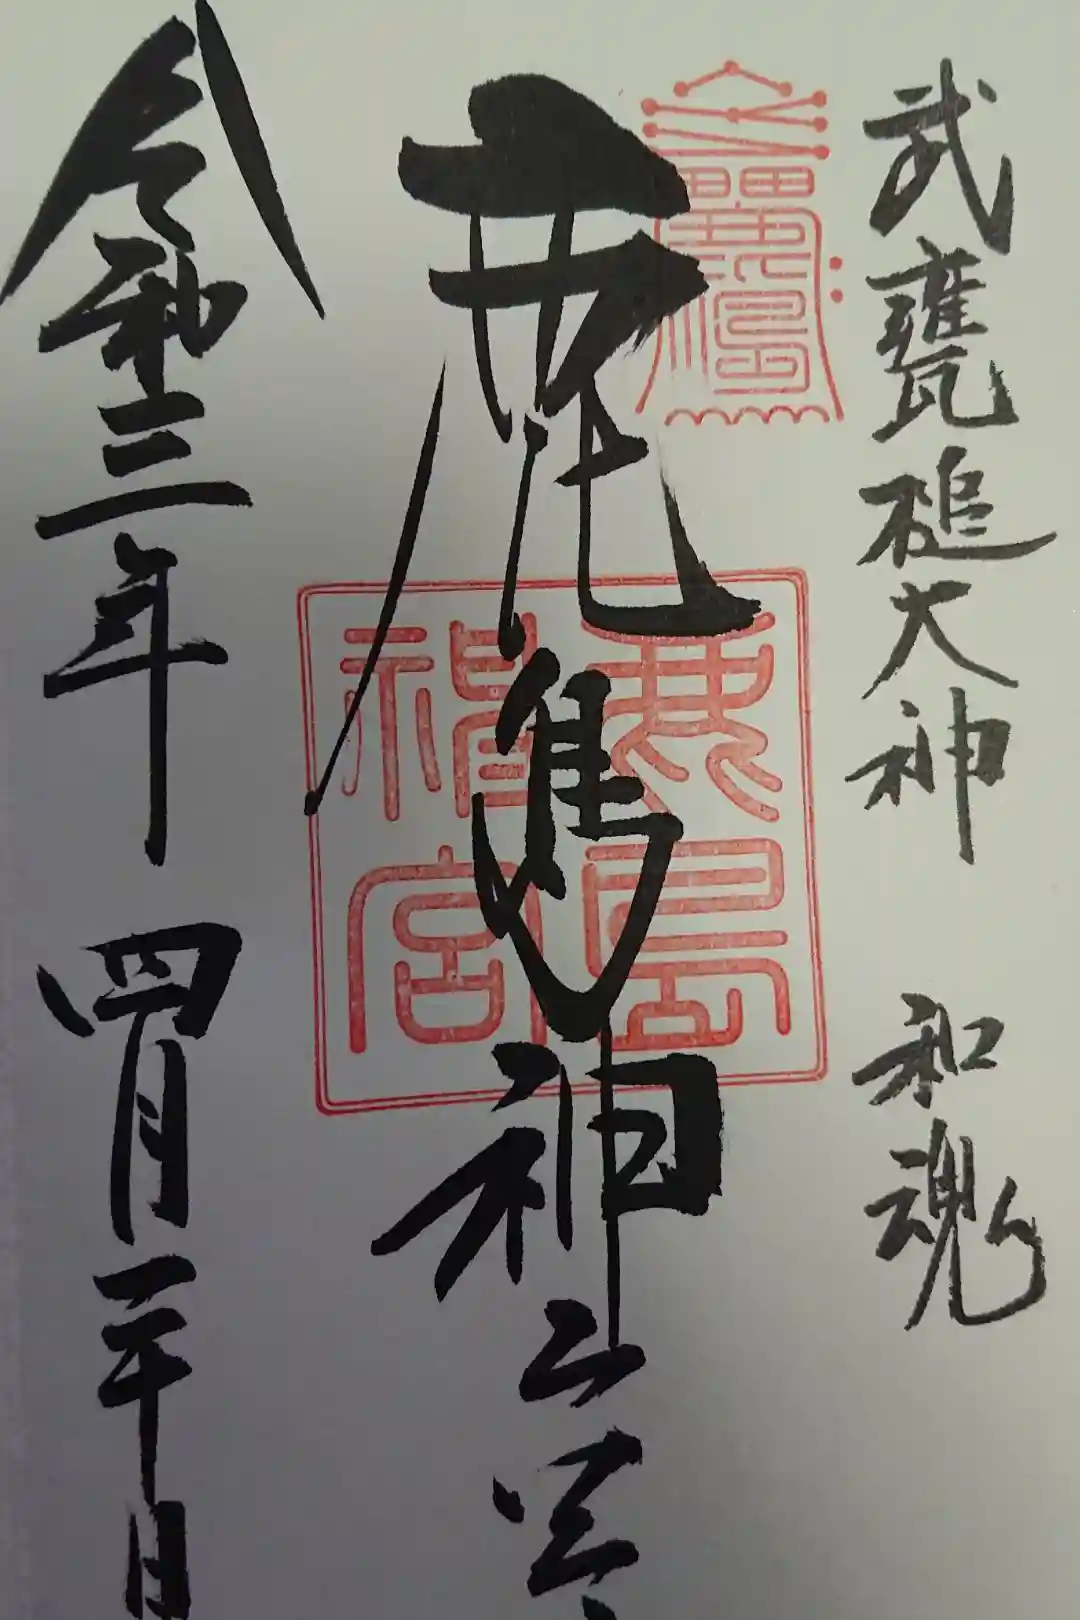 武甕槌大神 和魂
鹿島神宮
令和三年 四月二十日
鹿島
神宮